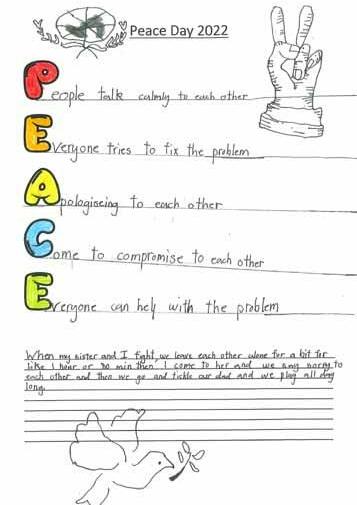 Peace Day 2022
People talk calmly to each other
Everyone tries to fix the problem
Apologiseing to each other
Come to compromise to each other
Everyone can help with the problem
When my sister and I fight, we leave each other alone for a bit for
like 1 hour or 30 min then I come to her and we say sorry to
each other and then we go and tickle our dad and we play all day
long.